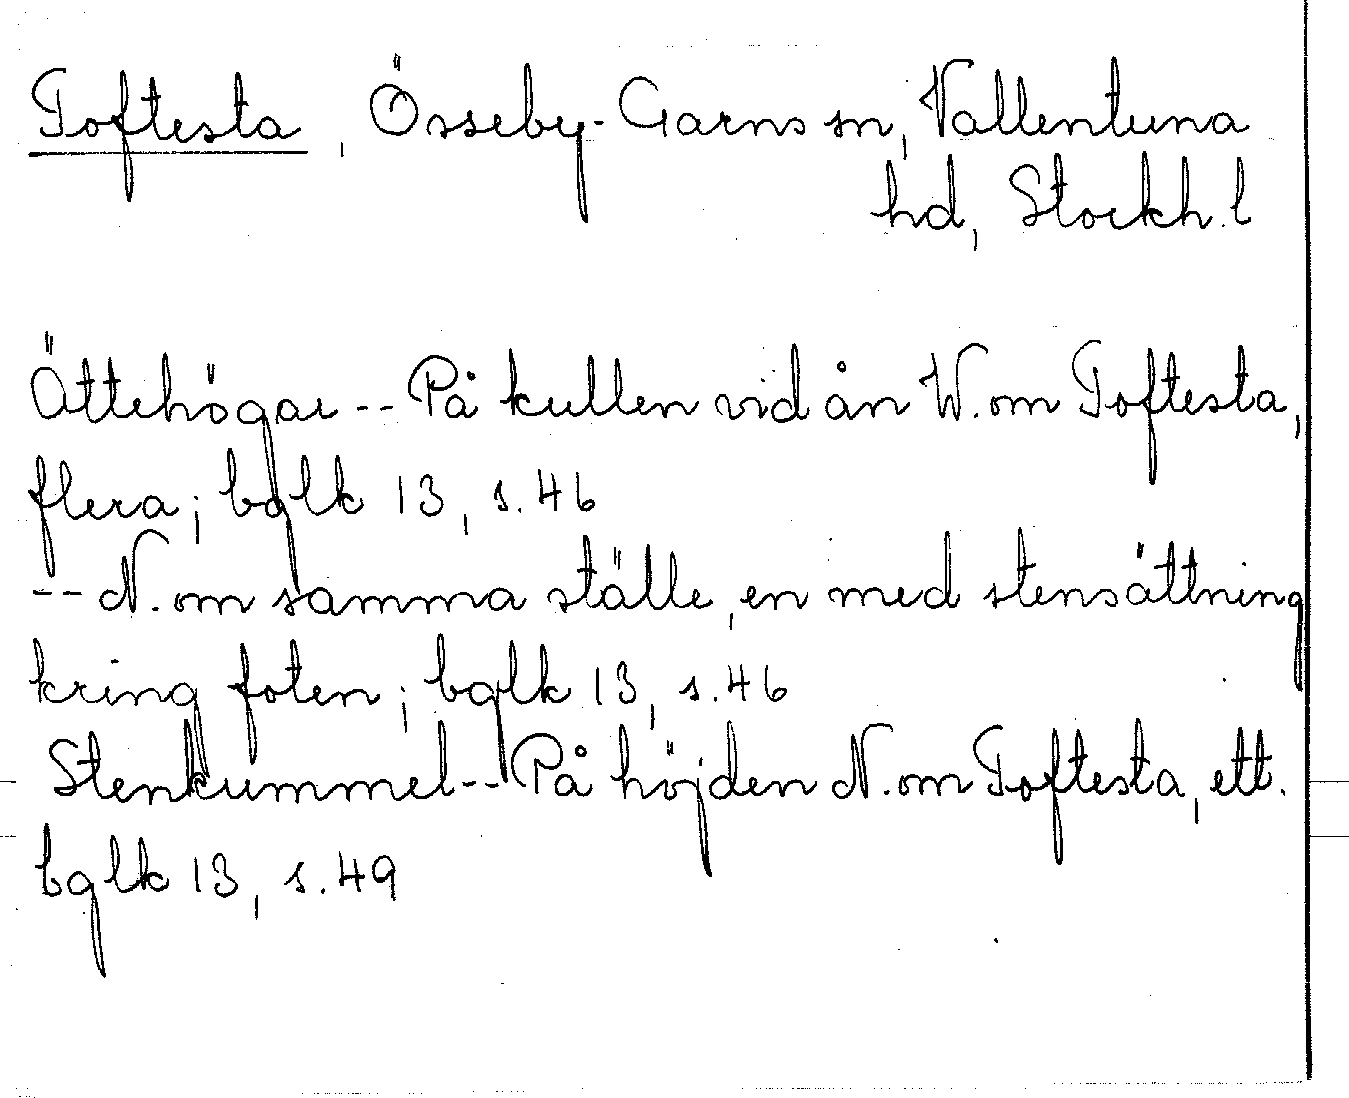 Toftesta, Össeby-Garns sn, Vallentuna
hd, Stockh. l
Ättehögar -- På kullen vid ån W. om Toftesta,
flera; bglk 13, s. 46
-- N. om samma ställe, en med stensättning
kring foten; bglk 13, s. 46
Stenkummel -- På höjden N. om Toftesta, ett.
bglk 13, s. 49